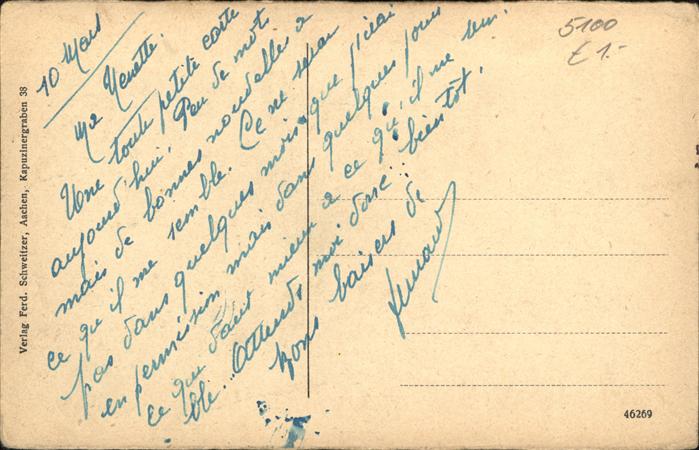 10 Mars
Ma Nenette.
Une toute petite carte
aujourd'hui. Peu de mots
mais de bonnes nouvelles à
ce qu'il me semble. Ce ne sera
pas dans quelques mois que j'irai
en permission mais dans quelques jours
ce qui vaut mieux à ce qu'il me sem-
ble. Attends moi donc bientôt.
Bons baisers de
Fernand
5100
€ 1.-
Verlag Ferd. Schweitzer, Aachen, Kapuzinergraben 38
46269